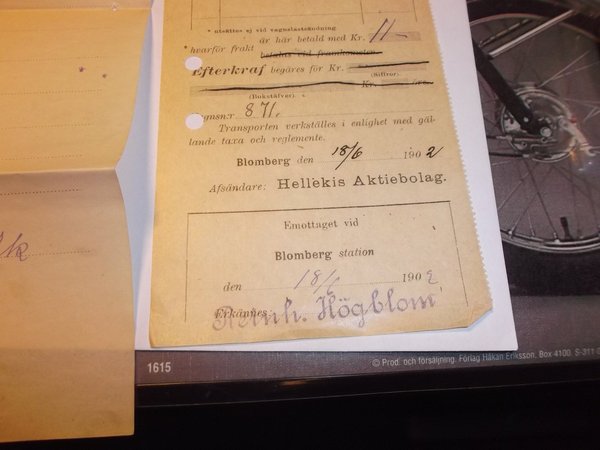 * utsättes ej vid vagnslastsändning
är här betald med Kr. 11-
* hvarför frakt betalas vid framkomsten.
Efterkraf begäres för Kr.
(Siffror)
Kr. öre.
(Bokstäfver)
gnsn:r 871.
Transporten verkställes i enlighet med gäl-
lande taxa och reglemente.
Blomberg den 18/6 1902
Afsändare: Hellekis Aktiebolag.
Emottaget vid
Blomberg station
den 18/6 1902
Erkännes:
Reinh. Högblom
1615
© Prod. och försäljning. Förlag Håkan Eriksson. Box 4100. S-311 0